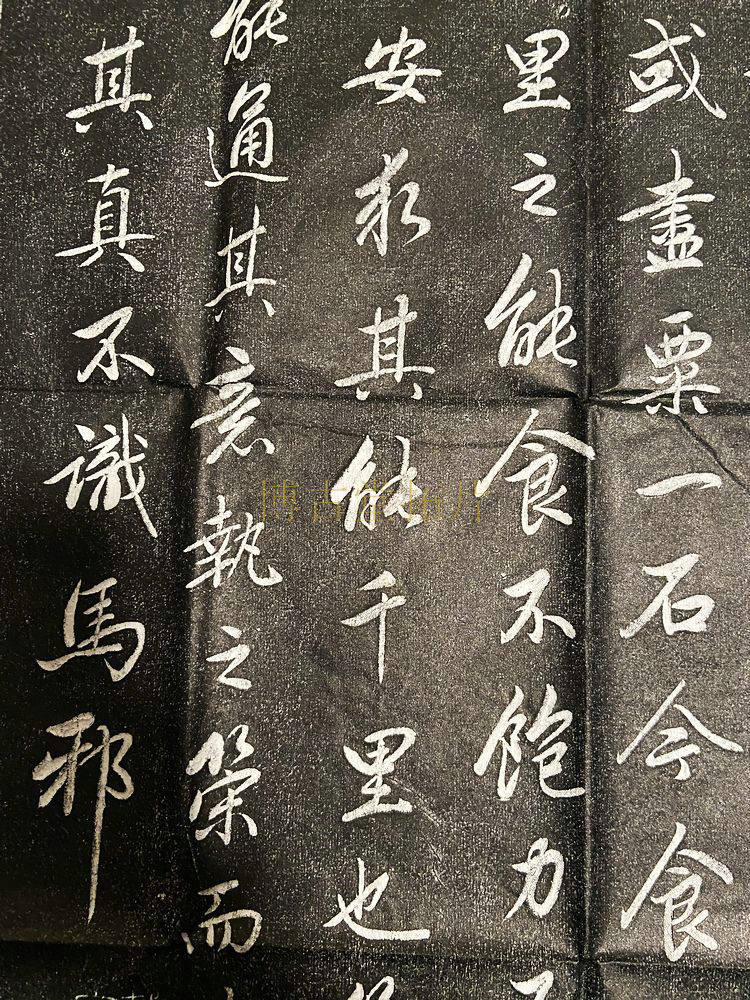 或盡粟一石今食
里之能食不飽力
安求其能千里也
能通其意執之策而
其真不識馬邪